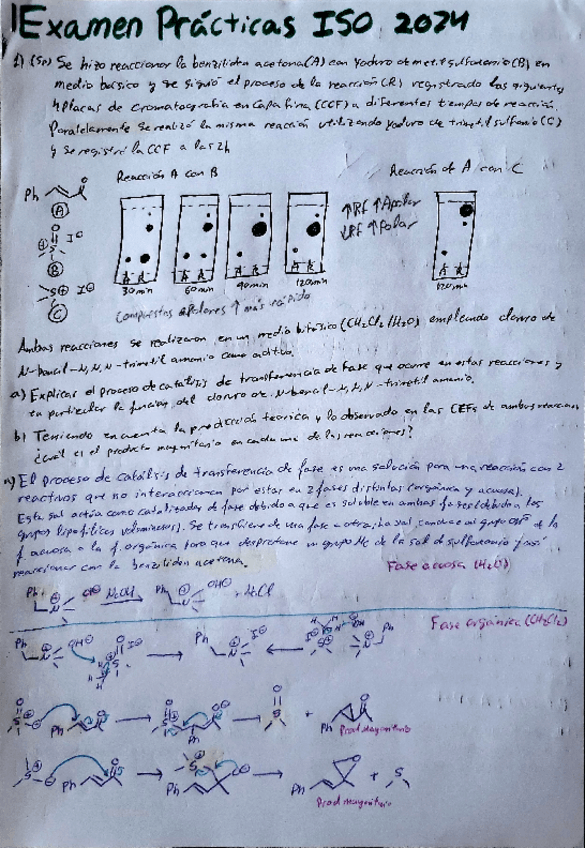 Examen Prácticas ISO 2024
1) (5p) Se hizo reaccionar la benziliden acetona (A) con yoduro de metil sulfoxonio (B) en
medio básico y se siguió el proceso de la reacción (R) registrado las siguientes
4 placas de cromatografía en Capa fina (CCF) a diferentes tiempos de reacción.
Paralelamente se realizó la misma reacción utilizando yoduro de trimetil sulfonio (C)
y se registró la CCF a las 2h
Reacción A con B
Reacción de A con C
Ph
O
A
O
S
I⊖
B
S⊕ I⊖
C
↑RF ↑Apolar
↓RF ↑Polar
A R
A R
A R
A R
A R
30min
60min
90min
120min
120min
Compuestos apolares ↑ más rápido
Ambas reacciones se realizaron en un medio bifásico (CH2Cl2/H2O) empleando cloruro de
N-bencil-N,N,N-trimetil amonio como aditivo.
a) Explicar el proceso de catálisis de transferencia de fase que ocurre en estas reacciones y
en particular la función del cloruro de N-bencil-N,N,N-trimetil amonio.
b) Teniendo en cuenta la predicción teórica y lo observado en las CCFs de ambas reacciones
¿cuál es el producto mayoritario en cada una de las reacciones?
a) El proceso de catálisis de transferencia de fase es una solución para una reacción con 2
reactivos que no interaccionan por estar en 2 fases distintas (orgánica y acuosa).
Esta sal actúa como catalizador de fase debido a que es soluble en ambas fases (debido a los
grupos lipofílicos voluminosos). Se transfiere de una fase a otra, la sal, conduce al grupo OH⊖ de la
f. acuosa a la f. orgánica para que desprotone un grupo Me de la sal de sulfoxonio y así
reaccionar con la benziliden acetona.
Fase acuosa (H2O)
Ph N⊕ Cl⊖ NaOH Ph N⊕ OH⊖ + NaCl
Fase orgánica (CH2Cl2)
Ph N⊕ OH⊖ O S I⊖ Ph N⊕ I⊖ Ph
O S⊕ Ph O Ph O S + Ph O
Prod mayoritario
S⊕ Ph O S⊕ Ph O⊖ Ph O + S
Prod mayoritario